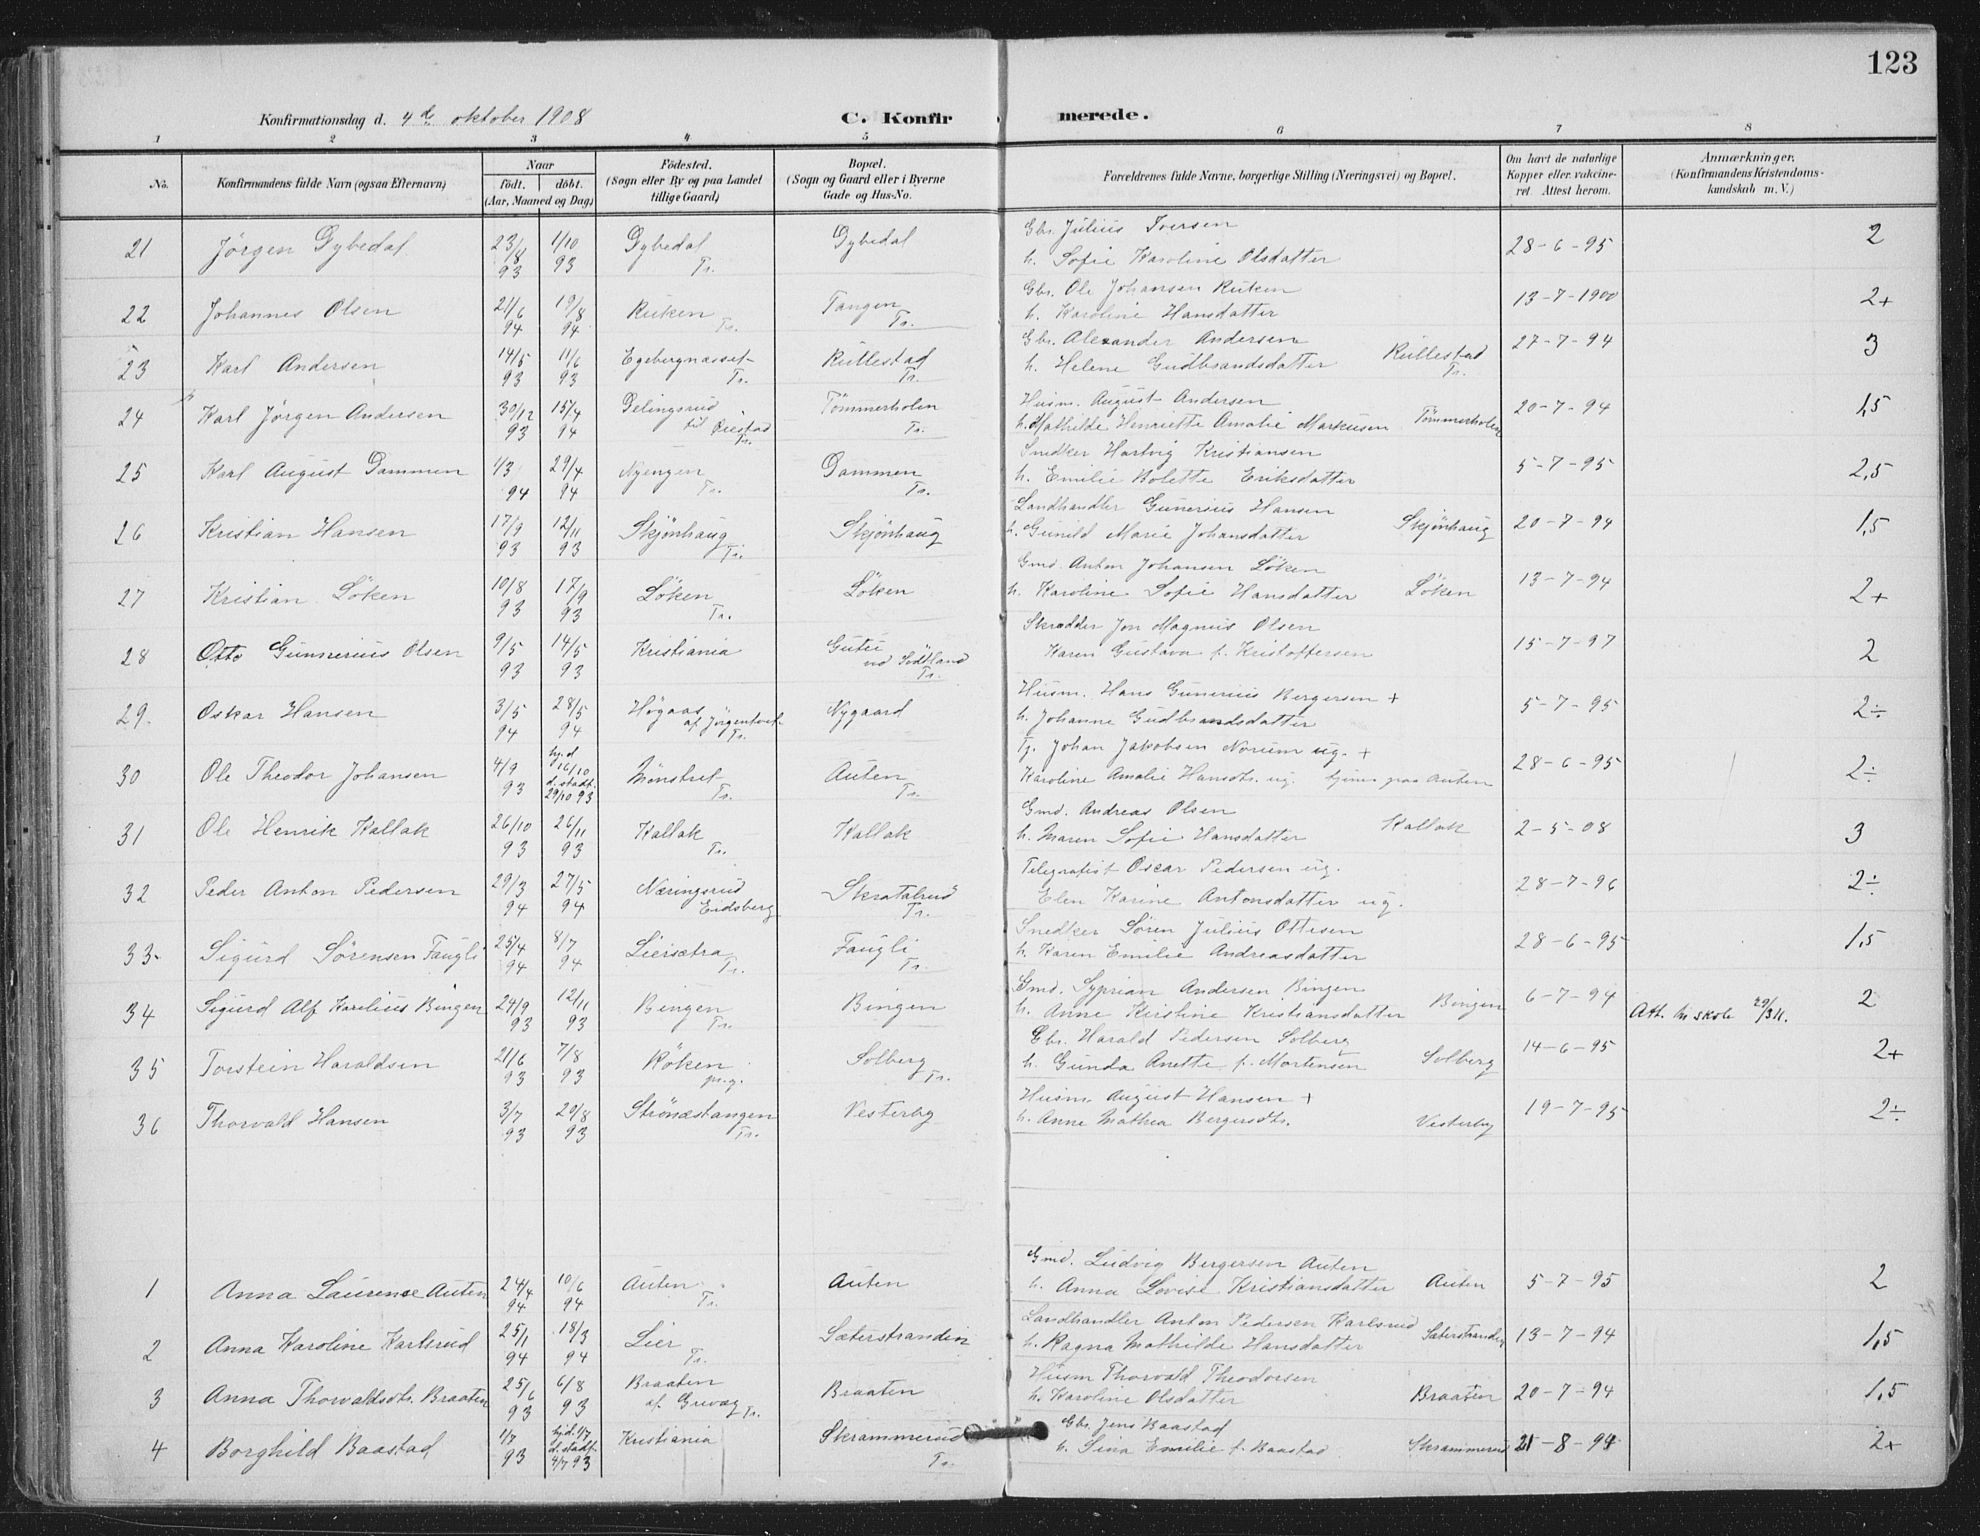 123
Konfirmationsdag d. 4de oktober 1908
C. Konfirmerede.
1 2 3 4 5 6 7 8
No. Konfirmandens fulde Navn (ogsaa Efternavn) Naar født. døbt. (Aar, Maaned og Dag) Födested. (Sogn eller By og paa Landet tillige Gaard) Bopæl. (Sogn og Gaard eller i Byerne Gade og Hus-No. Forældrenes fulde Navne, borgerlige Stilling (Næringsvei) og Bopæl. Om havt de naturlige Kopper eller vakcineret. Attest herom. Anmærkninger. (Konfirmandens Kristendomskundskab m. V.)
21 Jörgen Gybedal 23/8 93 1/10 93 Gybedal Tr. Gybedal Gbr. Julius Iversen
h. Sofie Karoline Olsdatter 28-6-95 2
22 Johannes Olsen 21/6 94 19/8 94 Ruken Tr. Tangen Tr. Gbr. Ole Johansen Ruken
h. Karoline Hansdatter 13-7-1900 2+
23 Karl Andersen 14/5 93 11/6 93 Egebergnæsset Tr. Rullestad Tr. Gbr. Alexander Andersen
h. Helene Gudbrandsdatter Rullestad Tr. 27-7-94 3
24 Karl Jörgen Andersen 30/12 93 15/4 94 til Tr. Tömmerholen Tr. Husm. August Andersen
h. Mathilde Henriette Amalie Markusen Tömmerholen 20-7-94 1,5
25 Karl August Dammen 1/3 94 29/4 94 Nyengen Tr. Dammen Tr. Snedker Hartvig Kristiansen
h. Emilie Bolette Eriksdatter 5-7-95 2,5
26 Kristian Hansen 17/9 93 12/11 93 Skjönhaug Tr. Skjönhaug Landhandler Gunerius Hansen
h. Gunild Marie Johansdatter Skjönhaug 20-7-94 1,5
27 Kristian Löken 10/8 93 17/9 93 Löken Tr. Löken Gmd. Anton Johansen Löken
h. Karoline Sofie Hansdatter Löken 13-7-94 2+
28 Otto Gunnerius Olsen 9/5 93 14/5 93 Kristiania Tr. Skrædder Jon Magnus Olsen
Karen Gustava f. Kristoffersen 15-7-97 2
29. Oskar Hansen 3/5 94 28/5 94 Högaas af Tr. Nygaard Husm. Hans Gunerius Bergersen +
h. Johanne Gudbrandsdatter 5-7-95 2÷
30 Ole Theodor Johansen 4/9 93 hj.d 16/10 d. stadf. 29/10 93 Mönstret Tr. Auten Tr. Tj. Johan Jakobsen Norum ug. +
Karoline Amalie Hansdtr. ug. tjener paa Auten 28-6-95 2÷
31 Ole Henrik Kallak 26/10 93 26/11 93 Kallak Tr. Kallak Gmd. Andreas Olsen
h. Maren Sofie Hansdatter Kallak 2-5-08 3
32 Peder Anton Pedersen 29/3 94 27/5 94 Næringsrud Eidsberg Skratalrud Tr. Telegrafist Oscar Pedersen ug.
Elen Karine Antonsdatter ug. 28-7-96 2÷
33 Sigurd Sörensen Faugli 25/4 94 8/7 94 Liersætra Tr. Faugli Tr. Snedker Sören Julius Ottesen
h. Karen Emilie Andreasdatter 28-6-95 1,5
34 Sigurd Alf Karelius Bingen 24/9 93 12/11 93 Bingen Tr. Bingen Gmd. Syprian Andersen Bingen
h. Anne Kirstine Kristiansdatter Bingen 6-7-94 Att. skole 29/3 11. 2
35 Torstein Haraldsen 21/6 93 7/8 93 Röken Solberg Tr. Gbr. Harald Pedersen Solberg
h. Gunda Anette f. Mortensen Solberg 14-6-95 2+
36 Thorvald Hansen 3/7 93 20/8 93 Strönæstangen Tr. Vesterby Husm. August Hansen +
h. Anne Mathea Bergersdtr. Vesterby 19-7-95 2÷
1 Anna Laurense Auten 24/4 94 10/6 94 Auten Tr. Auten Gmd. Ludvig Bergersen Auten
h. Anna Lovise Kristiansdatter Auten 5-7-95 2
2 Anna Karoline Karlsrud 25/1 94 18/3 94 Lier Tr. Sæterstranden Landhandler Anton Pedersen Karlsrud
h. Ragna Mathilde Hansdatter Sæterstranden 13-7-94 1,5
3 Anna Thorvaldsdtr. Braaten 25/6 93 6/8 93 Braaten af Grevag Tr. Braaten Husm Thorvald Theodorsen
h. Karoline Olsdatter Braaten 20-7-94 1,5
4 Borghild Baastad 93 hj.d. d. stadf. 93 Kristiania Skrammerud Tr. Gbr. Jens Baastad
h. Sina Emilie f. Baastad Skrammerud 21-8-94 2+